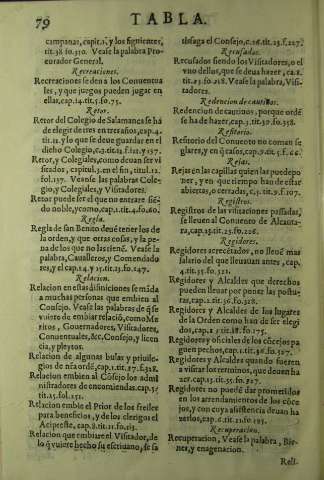 79 TABLA.
campanas, capit.1, y los siguientes,
tit.38.fo.310. Vease la palabra Pro-
curador General.
Recreaciones.
Recreaciones se den a los Conuentua
les, y que juegos pueden jugar en
ellas, cap.14.tit.5.fo.75.
Retor.
Retor del Colegio de Salamanca se hà
de elegir de tres en tres años, cap.4.
tit.12. y lo que se deue guardar en el
dicho Colegio, c.2.tit.42.f.12.y 137.
Retor, y Colegiales, como deuan ser vi
sitados, capitul.3. en el fin, titul.12.
fol.137. Veanse las palabras Cole-
gio, y Colegiales, y Visitadores.
Retor puede ser el que no entrare siẽ-
do noble, y como, cap.1.tit.4.fo.60.
Regla.
Regla de san Benito deuẽ tener los de
la orden, y que otras cosas, y la pe-
na de los que no las tienẽ. Vease la
palabra, Caualleros, y Comendado
res, y el cap.14. y 15.tit.23.fo.247.
Relacion.
Relacion en estas difiniciones se mãda
a muchas personas que embien al
Consejo. Vease las palabras de q̃ se
vuiere de embiar relaciõ, como Me
ritos, Gouernadores, Visitadores,
Conuentuales, &c. Consejo, y licen
cia, y pleytos.
Relacion de algunas bulas y priuile-
gios de nr̃a ordẽ, cap.1.tit.37.f.318.
Relacion embien al Cõsejo los admi
nistradores de encomiendas. cap.5
tit.25.fol.251.
Relacion embie el Prior de los freiles
para beneficios, y de los clerigos el
Acipreste, cap.8.tit.11.fo.113.
Relacion que embiare el Visitador, de
lo q̃ viere hecho su escriuano, se sa
tisfaga el Consejo, c.26.tit.23.f.227.
Recusados.
Recusados siendo los Visitadores, o el
vno dellos, que se deua hazer, ca.8.
tit.23.fo.218. Vease la palabra, Visi-
tadores.
Redencion de cautiuos.
Redencion de cautiuos, porque ordẽ
se ha de hazer, cap.3.tit.37.fo.318.
Refitorio.
Refitorio del Conuento no coman se
glares, y en q̃ casos, cap.9.tit.5.f.66.
Rejas.
Rejas en las capillas quien las puede po
ner, y en que tiempo han de estar
abiertas, o cerradas, c.3.tit.9.f.107.
Registros.
Registros de las visitaciones passadas,
se lleuen al Conuento de Alcanta-
ra, cap.25.tit.23.fo.226.
Regidores.
Regidores acrecẽtados, no lleuẽ mas
salario del que lleuauan antes, cap.
4.tit.35.fo.321.
Regidores y Alcaldes que derechos
pueden lleuar por poner las postu-
ras, cap.2.tit.36.fo.328.
Regidores y Alcaldes de los lugares
de la Orden como han de ser elegi
dos, cap.2.tit.18.fo.175.
Regidores y oficiales de los cõcejos pa
guen pechos, cap.1.tit.36.fo.327.
Regidores y Alcaldes quando fueren
a visitar los terminos, que deuen ha
zer, cap.15.tit.35.fo.327.
Regidores no puedẽ dar prometidos
en los arrendamientos de los cõce
jos, y con cuya assistencia deuan ha
zerlos, cap.6.tit.21.fo.193.
Recuperacion.
Recuperacion, Vease la palabra, Bie-
nes, y enagenacion.
Reli-